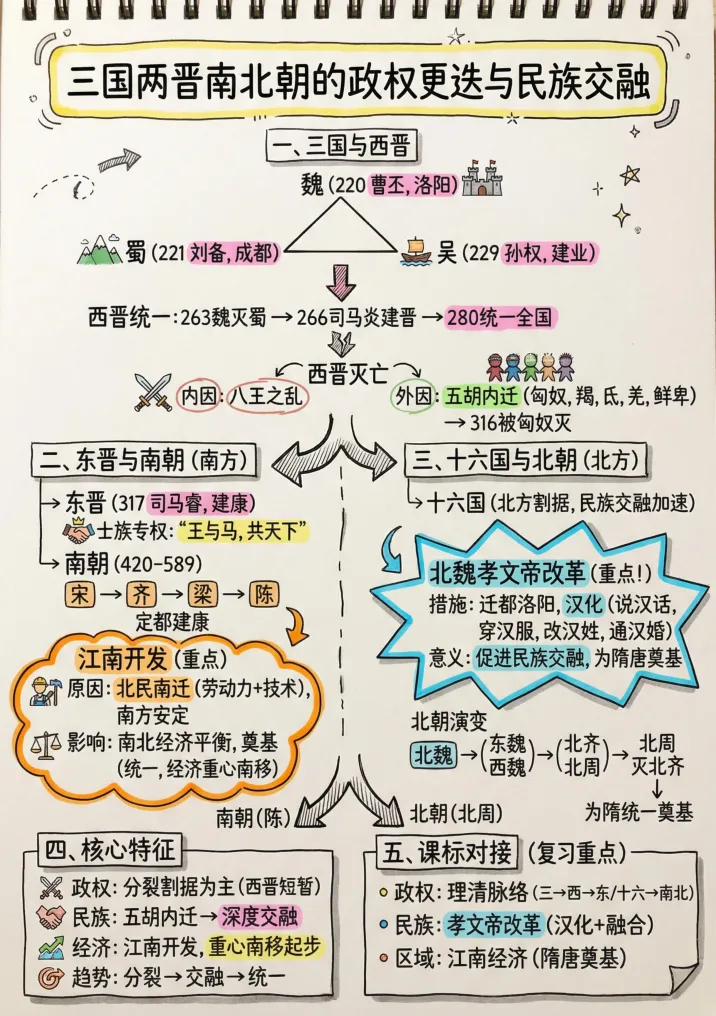 三国两晋南北朝的政权更迭与民族交融
一、三国与西晋
魏(220 曹丕, 洛阳)
蜀(221 刘备, 成都)
吴(229 孙权, 建业)
西晋统一:263魏灭蜀→266司马炎建晋→280统一全国
西晋灭亡
内因:八王之乱
外因:五胡内迁(匈奴, 羯, 氐, 羌, 鲜卑)
→316被匈奴灭
二、东晋与南朝(南方)
→东晋(317 司马睿, 建康)
士族专权:“王与马,共天下”
→南朝(420-589)
宋→齐→梁→陈
定都建康
江南开发(重点)
原因:北民南迁(劳动力+技术),
南方安定
影响:南北经济平衡,奠基
(统一,经济重心南移)
南朝(陈)
三、十六国与北朝(北方)
→十六国(北方割据,民族交融加速)
北魏孝文帝改革(重点!)
措施:迁都洛阳,汉化(说汉话,
穿汉服,改汉姓,通汉婚)
意义:促进民族交融,为隋唐奠基
北朝演变
北魏→(东魏 西魏)→(北齐 北周)→北周
灭北齐
↓
为隋统一奠基
北朝(北周)
四、核心特征
政权:分裂割据为主(西晋短暂)
民族:五胡内迁→深度交融
经济:江南开发,重心南移起步
趋势:分裂→交融→统一
五、课标对接(复习重点)
政权:理清脉络(三→西→东/十六→南北)
民族:孝文帝改革(汉化+融合)
区域:江南经济(隋唐奠基)